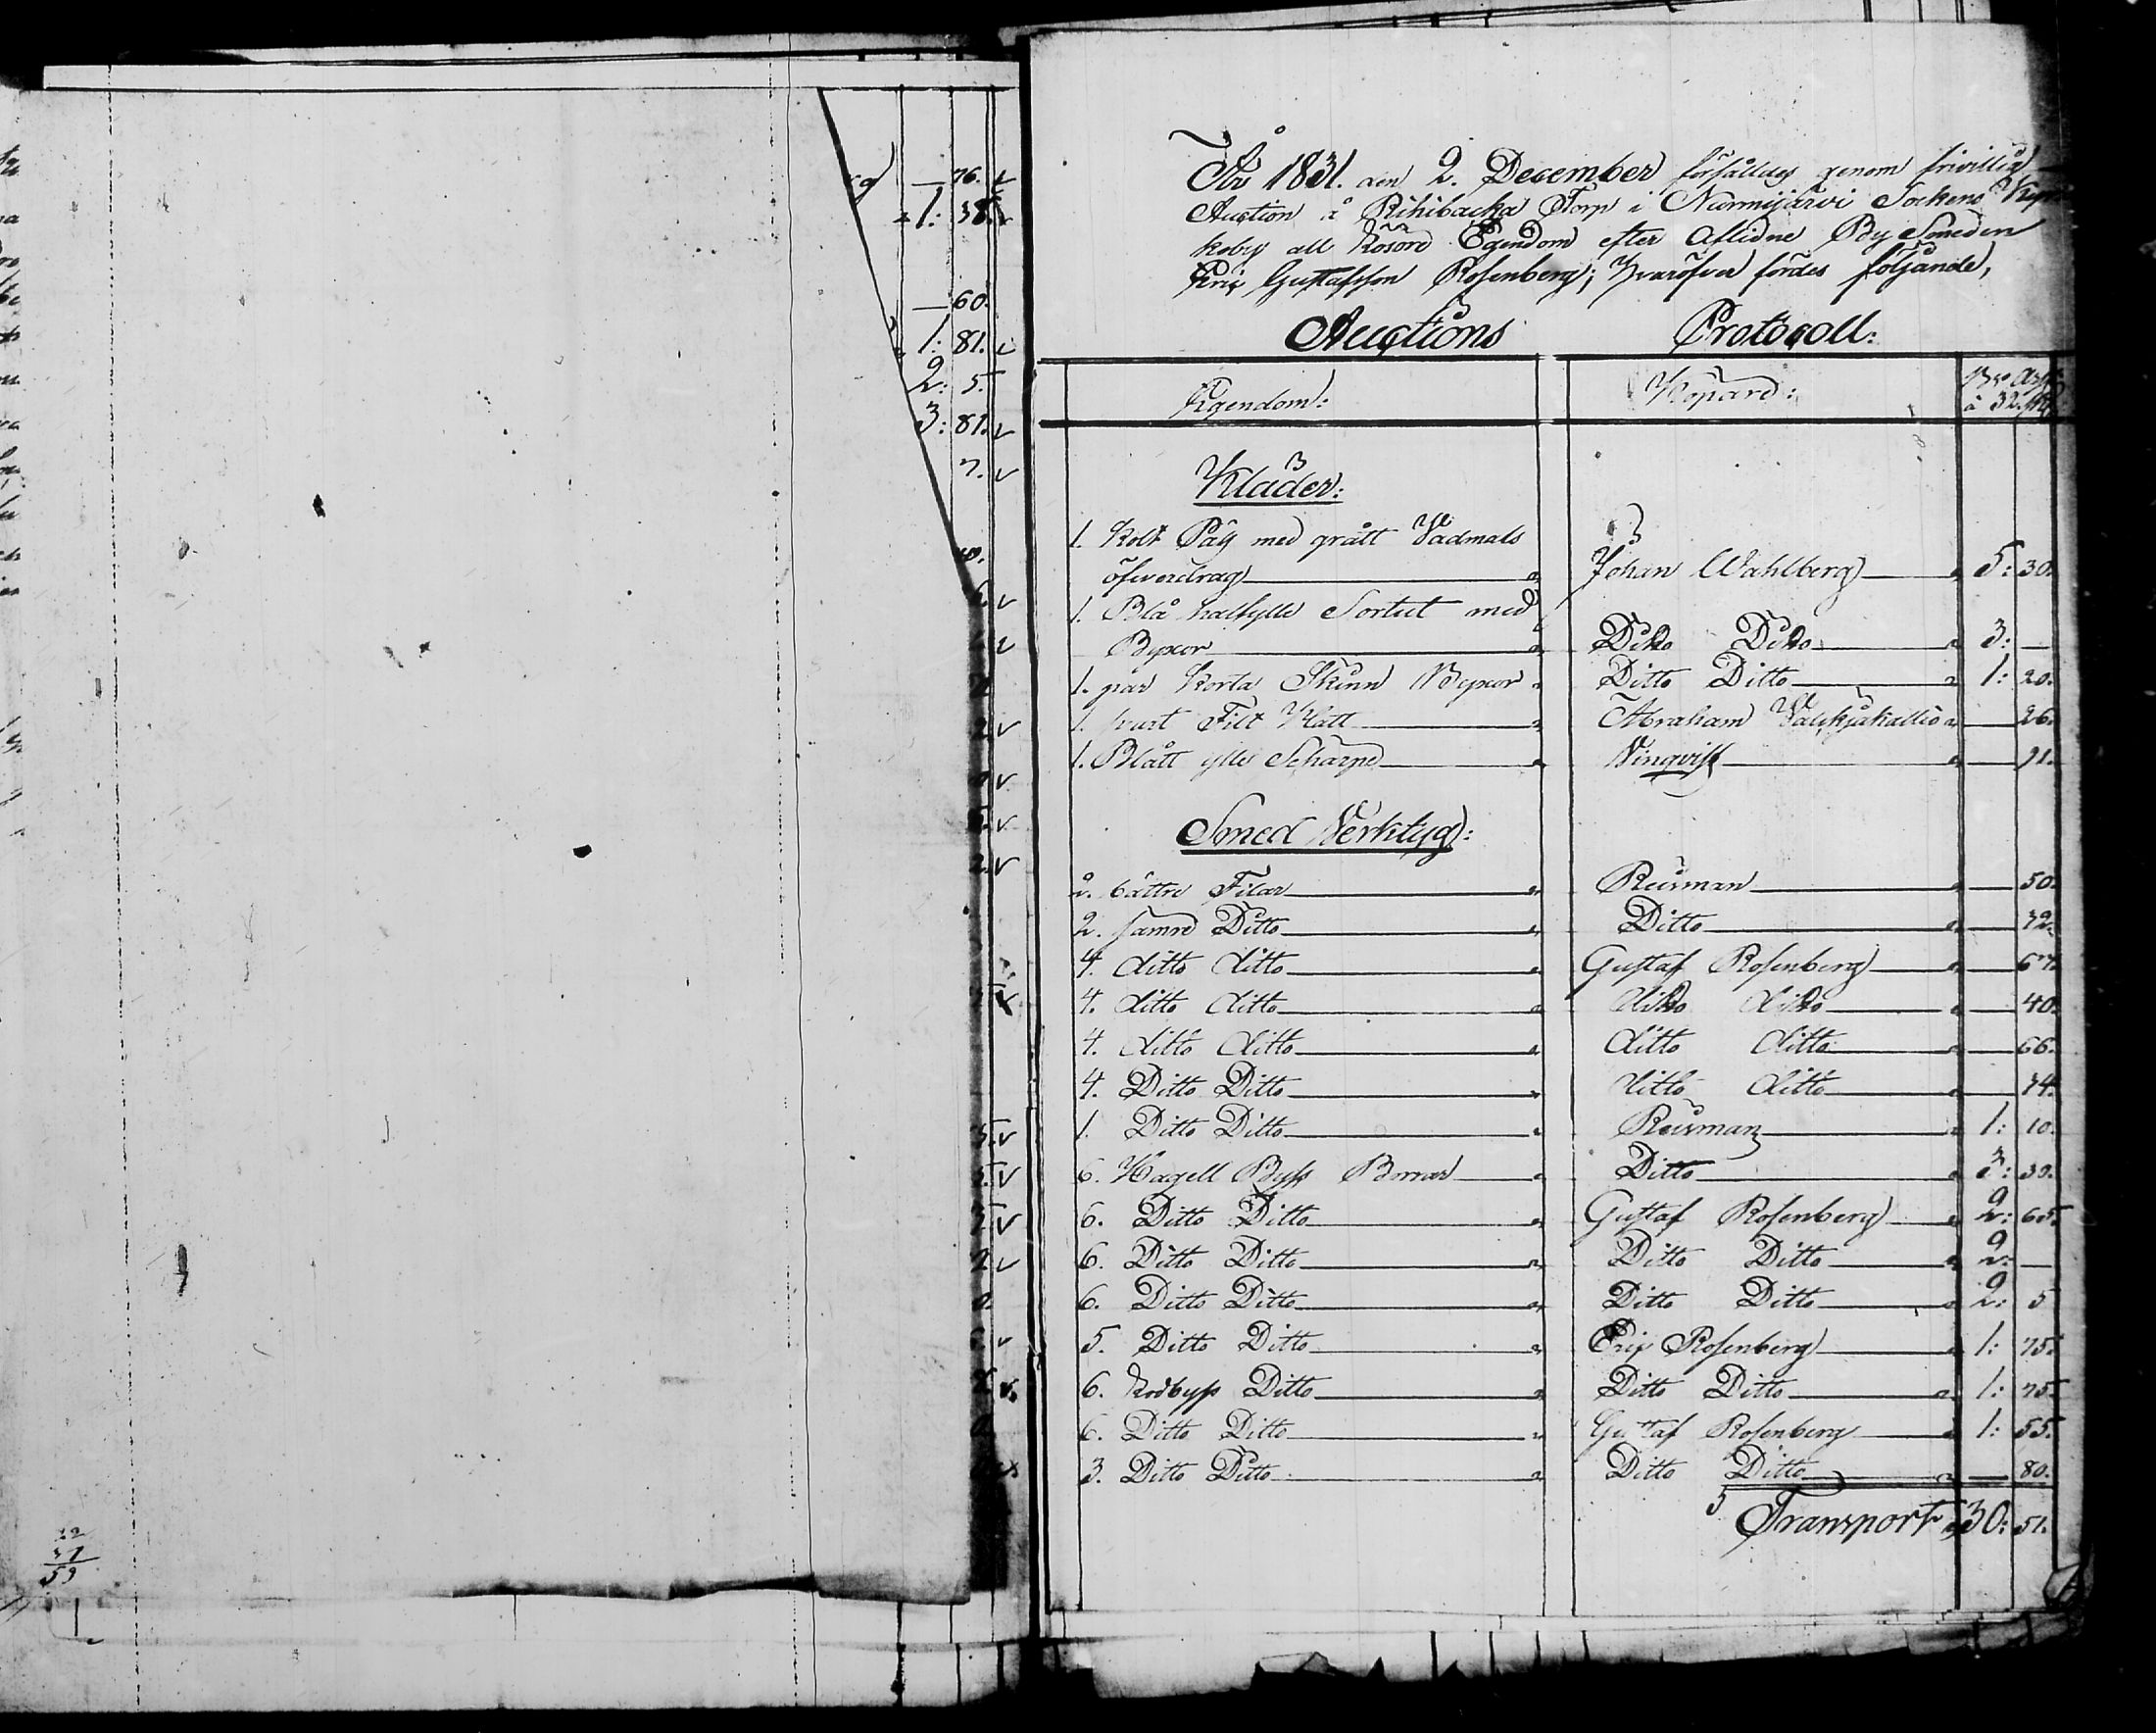 76.
1: 38.
60.
1: 81.
2: 5.
3: 81.
7.
22
37
59
År 1831. den 2. December försåldes genom frivillig
Auction å Rihibacka Torp i Nurmijärvi Sockens
koby all Lösöre Egendom efter Aflidne By Smeden
Eric Gustafsson Rosenberg; hvaröfver fördes följande,
Auctions Protocoll:
Egendom: Köpare: Bco Assg. à 32.
Kläder:
1. Kolt Päls med grått Vadmals
öfverdrag Johan Wahlberg 5: 30.
1. Blå halfylle Sortut med
Byxor Ditto Ditto 3: —
1. par korta Skinn Byxor Ditto Ditto 1: 20.
1. svart Filt Hatt Abraham — 26.
1. Blått ylle Schärpe Vinqvist — 21.
Smed Verktyg:
2. bättre Filar Reusman — 50.
2. sämre Ditto Ditto — 32.
4. ditto ditto Gustaf Rosenberg — 67.
4. ditto ditto ditto ditto — 40.
4. ditto ditto ditto ditto — 66.
4. Ditto Ditto ditto ditto — 34.
1. Ditto Ditto Reusman 1: 10.
6. Hagell Byss Borrar Ditto 3: 30.
6. Ditto Ditto Gustaf Rosenberg 2: 65.
6. Ditto Ditto Ditto Ditto 2: —
6. Ditto Ditto Ditto Ditto 2: 5
5. Ditto Ditto Eric Rosenberg 1: 75.
6. Lodbyss Ditto Ditto Ditto 1: 75.
6. Ditto Ditto Gustaf Rosenberg 1: 55.
3. Ditto Ditto Ditto Ditto — 80.
Transport 30: 51.